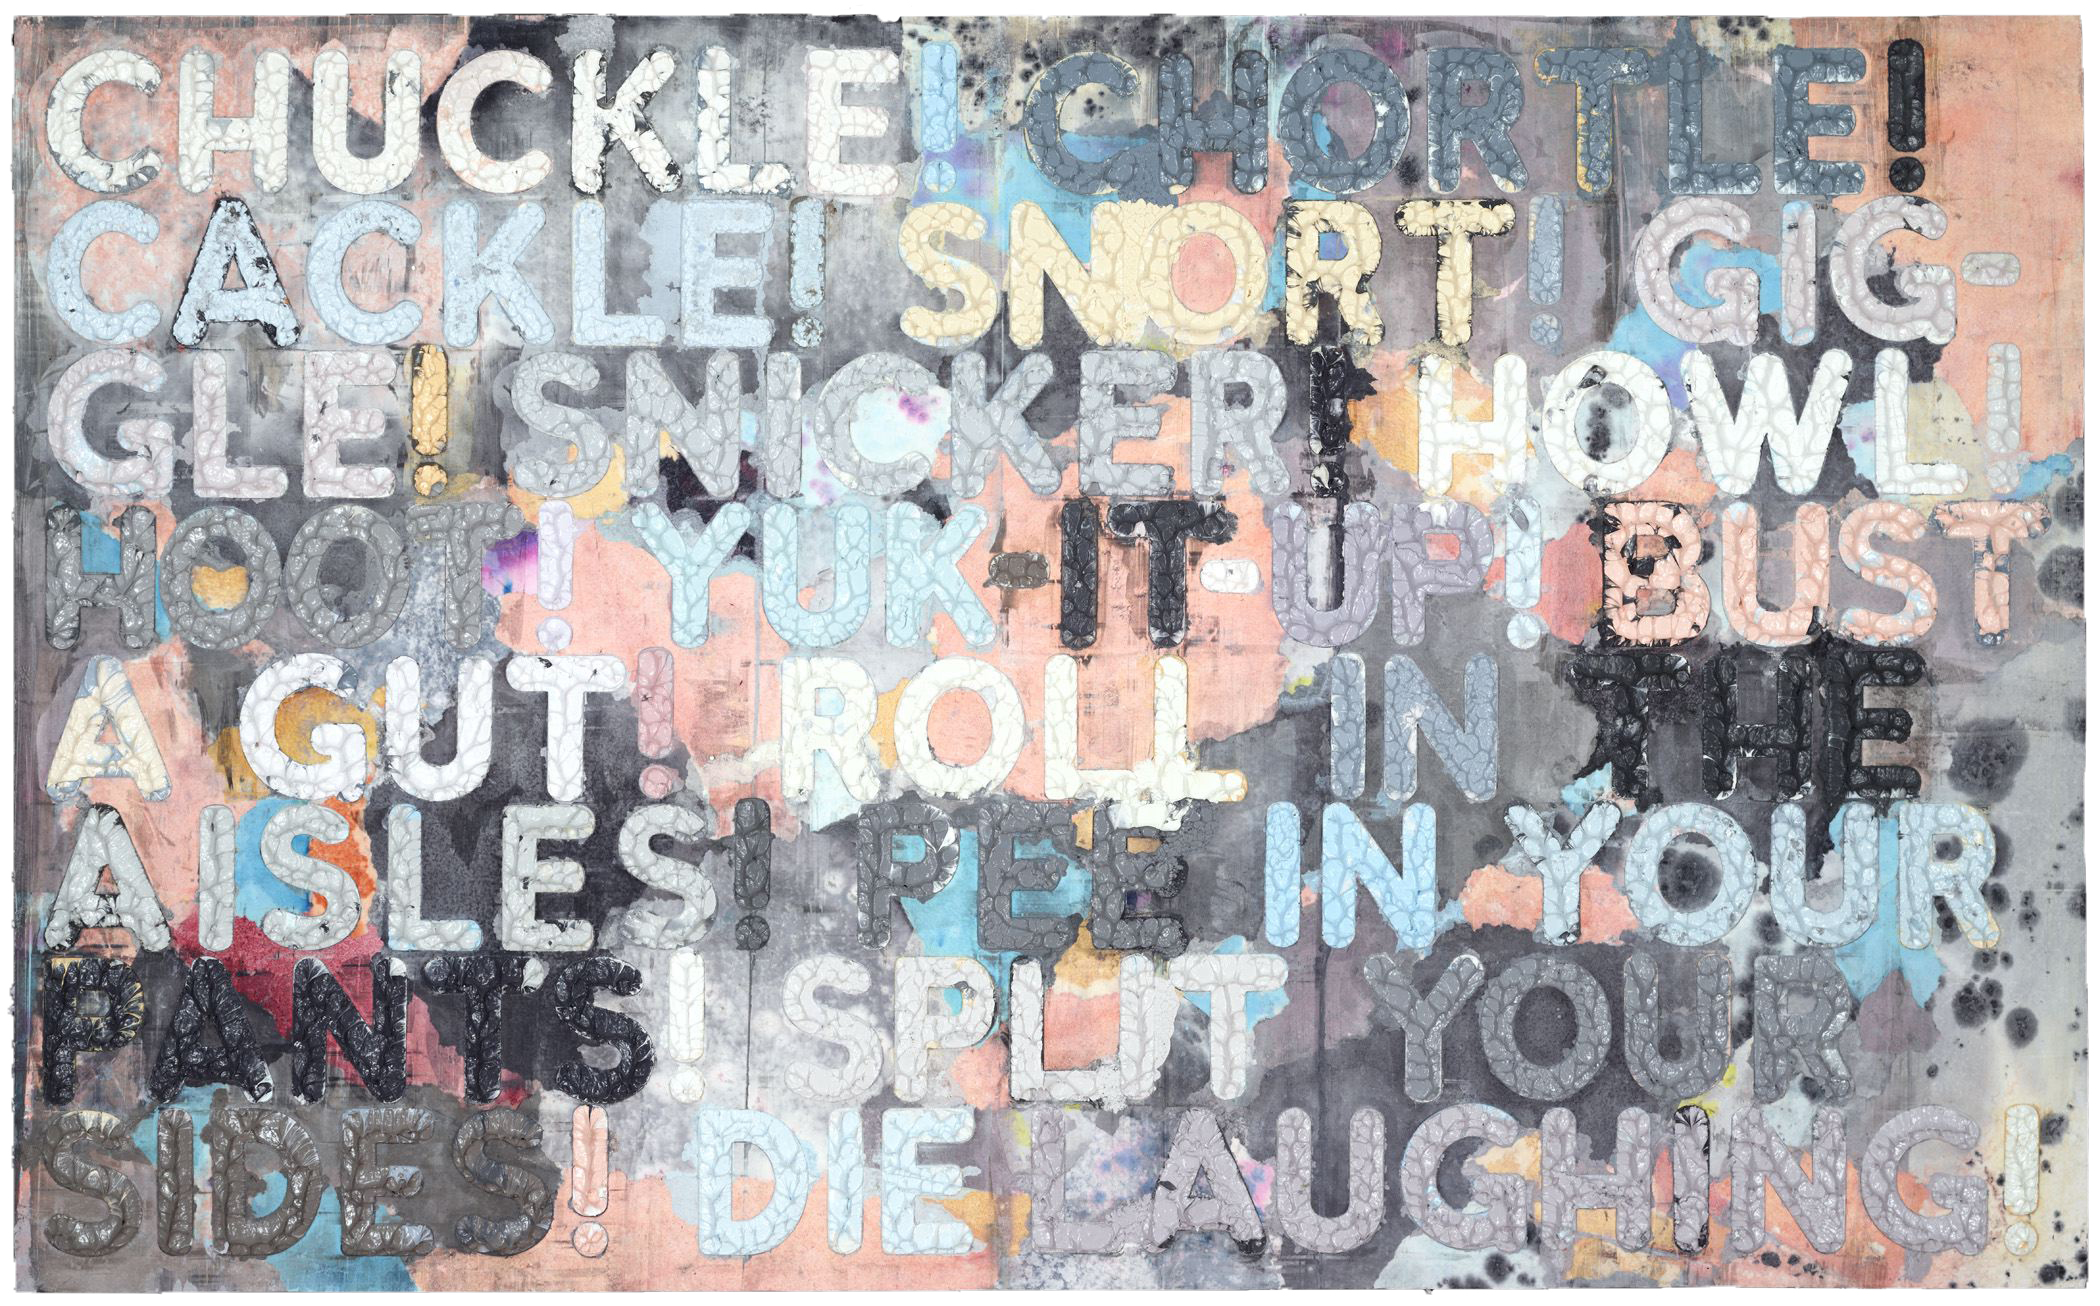 CHUCKLE! CHORTLE!
CACKLE! SNORT! GIG-
GLE! SNICKER! HOWL!
HOOT! YUK-IT-UP! BUST
A GUT! ROLL IN THE
AISLES! PEE IN YOUR
PANTS! SPLIT YOUR
SIDES! DIE LAUGHING!